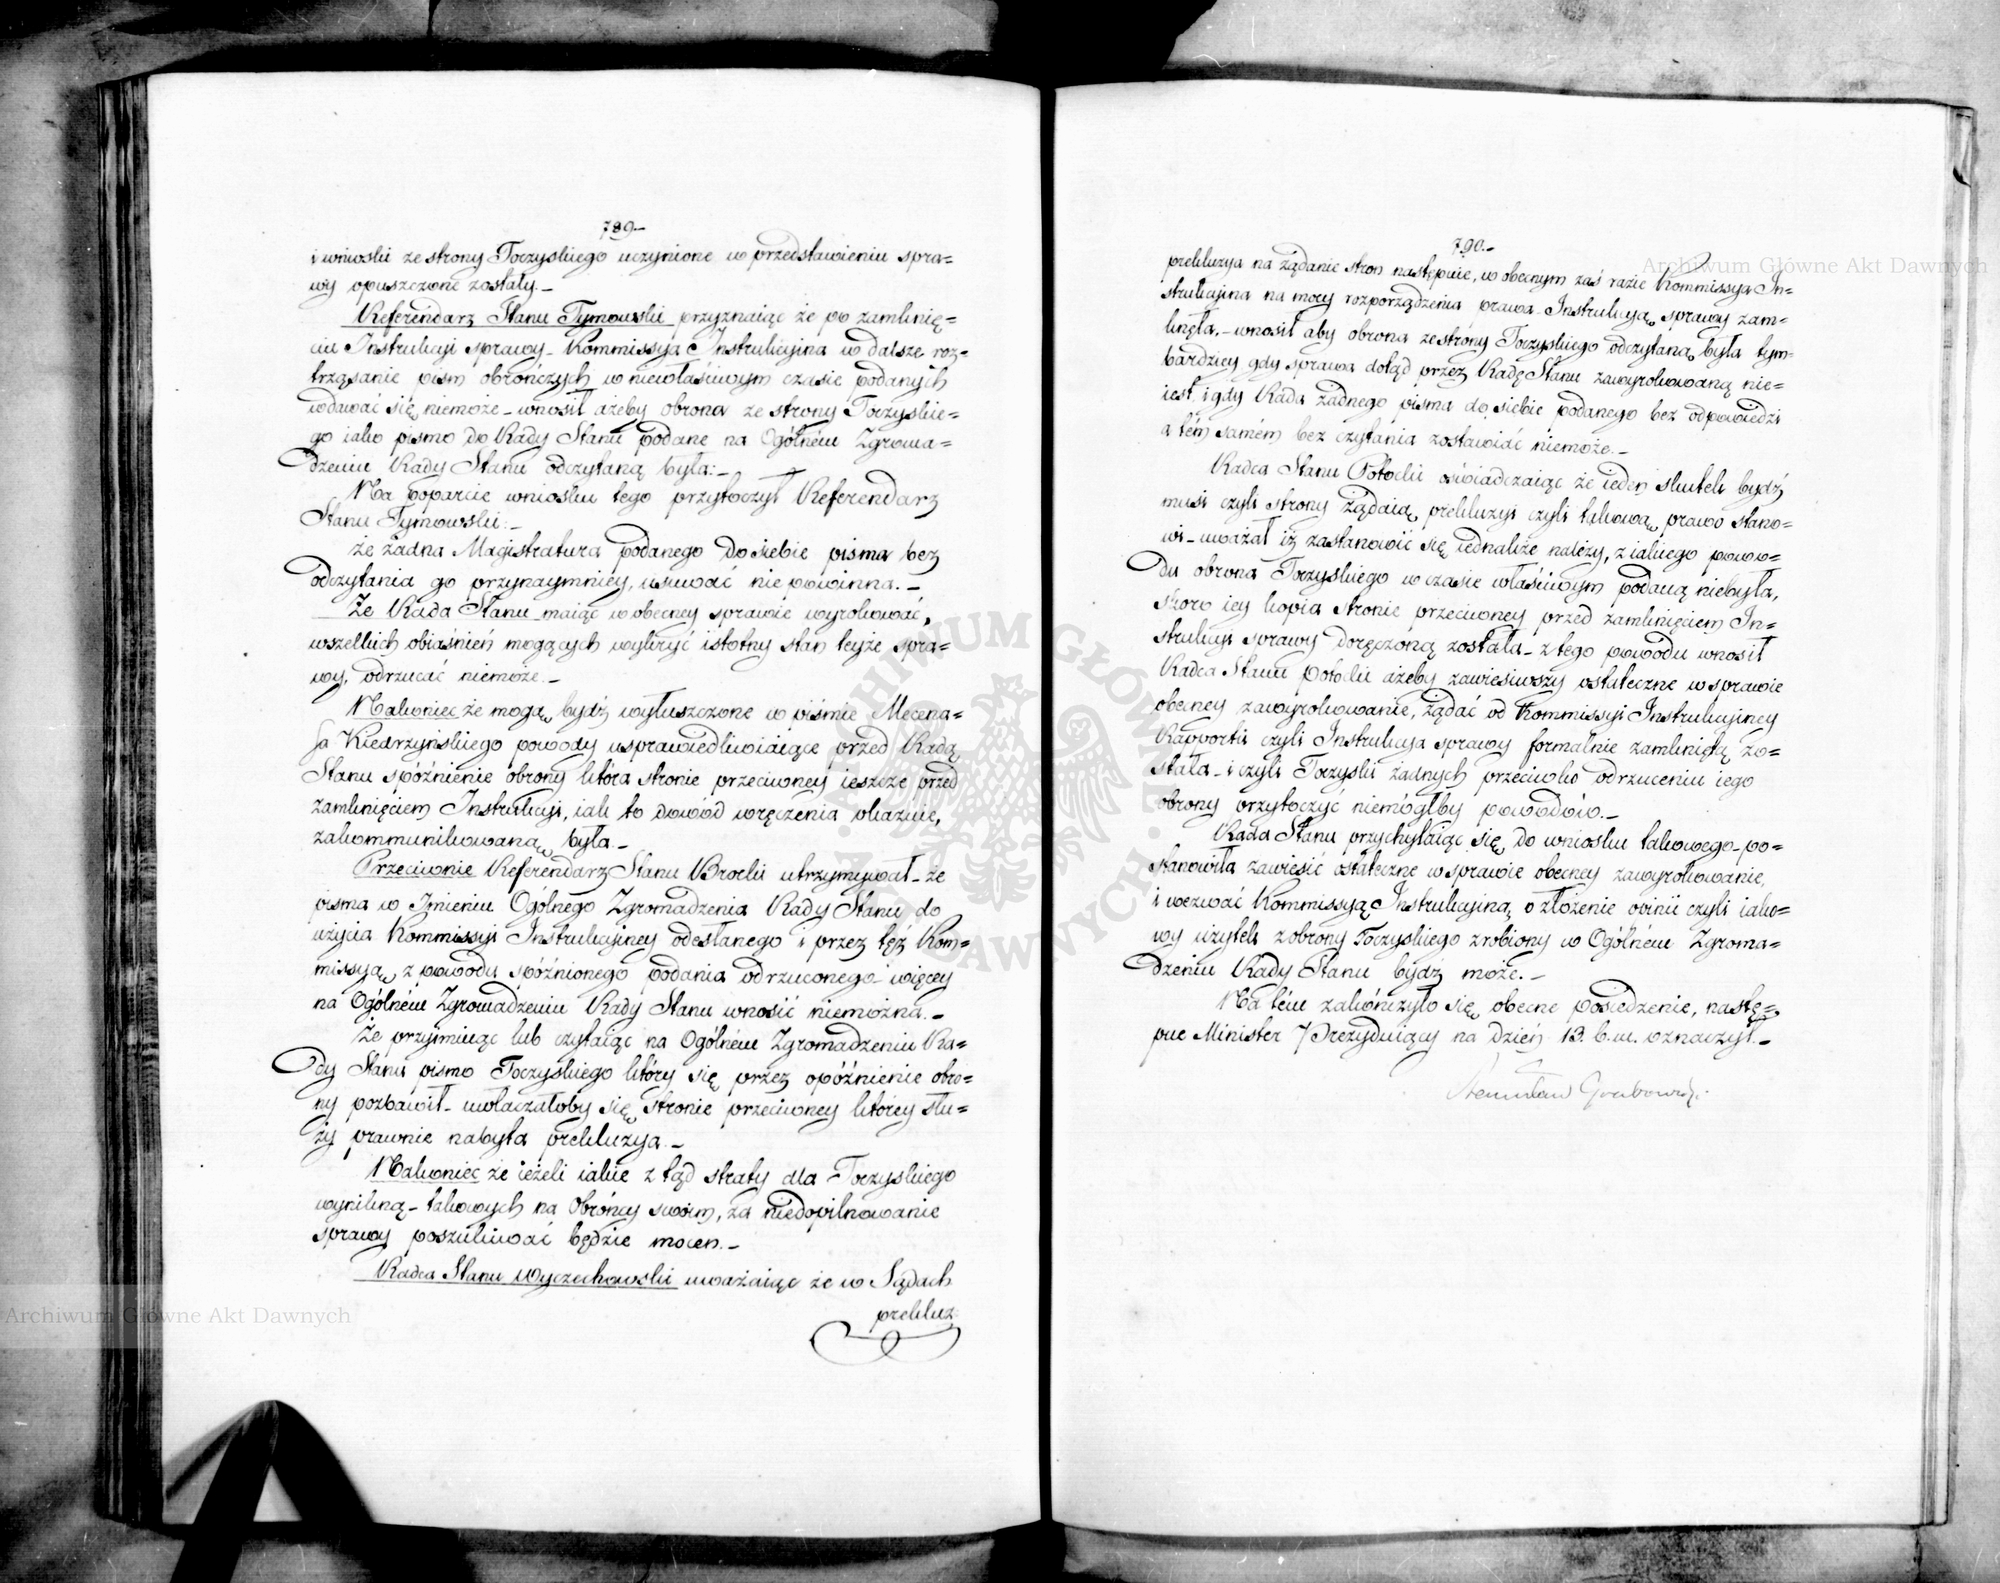 789.–
i wnioski ze strony Toczyskiego uczynione w przedstawieniu spra=
wy opuszczone zostały.–
Referendarz Stanu Tymowski przyznaiąc że po zamknię=
ciu Instrukcyi sprawy– Kommissya Instrukcyina w dalsze roz=
trząsanie pism obrończych w niewłaściwym czasie podanych
wdawać się niemoże– wnosił ażeby obrona ze strony Toczyskie=
go iako pismo do Rady Stanu podane na Ogólném Zgroma=
dzeniu Rady Stanu odczytaną była:–
Na poparcie wniosku tego przytoczył Referendarz
Stanu Tymowski:–
że żadna Magistratura podanego do siebie pisma bez
odczytania go przynaymniey, usuwać nie powinna.–
Że Rada Stanu maiąc w obecney sprawie wyrokować,
wszelkich obiaśnień mogących wykryć istotny stan teyże spra=
wy, odrzucać niemoże.–
Nakoniec że mogą bydź wyłuszczone w piśmie Mecena=
sa Kiedrzyńskiego powody usprawiedliwiaiące przed Radą
Stanu spóźnienie obrony która stronie przeciwney ieszcze przed
zamknięciem Instrukcyi, iak to dowód wręczenia okazuie,
zakommunikowaną była.–
Przeciwnie Referendarz Stanu Brocki utrzymywał– że
pisma w Imieniu Ogólnego Zgromadzenia Rady Stanu do
użycia Kommissyi Instrukcyiney odesłanego i przez tęż Kom=
missyą, z powodu spóźnionego podania odrzuconego– więcey
na Ogólném Zgromadzeniu Rady Stanu wnosić niemożna.–
Że przyimuiąc lub czytaiąc na Ogólném Zgromadzeniu Ra=
dy Stanu pismo Toczyskiego który się przez opóźnienie obro=
ny pozbawił– uwłaczałoby się stronie przeciwney którey słu=
ży prawnie nabyta prekluzya.–
Nakoniec że ieżeli iakie z tąd straty dla Toczyskiego
wynikną– takowych na Obrońcy swoim, za niedopilnowanie
sprawy poszukiwać będzie mocen.–
Radca Stanu Wyczechowski uważaiąc że w Sądach
prekluz=
790.–
prekluzya na żądanie stron następuie, w obecnym zaś razie Kommissya In=
strukcyina na mocy rozporządzenia prawa Instrukcyą sprawy zam=
knęła,– wnosił aby obrona ze strony Toczyskiego odczytaną była tym=
bardziey gdy sprawa dotąd przez Radę Stanu zawyrokowaną nie=
iest, i gdy Rada żadnego pisma do siebie podanego bez odpowiedzi
a tém samém bez czytania zostawiać niemoże.–
Radca Stanu Potocki oświadczaiąc że ieden skutek bydź
musi czyli strony żądaią prekluzyi czyli takową prawo stano=
wi– uważał iż zastanowić się iednakże należy, z iakiego powo=
du obrona Toczyskiego w czasie właściwym podaną niebyła,
skoro iey kopia stronie przeciwney przed zamknięciem In=
strukcyi sprawy doręczoną została– z tego powodu wnosił
Radca Stanu Potocki ażeby zawiesiwszy ostateczne w sprawie
obecney zawyrokowanie, żądać od Kommissyi Instrukcyiney
Rapportu czyli Instrukcya sprawy formalnie zamkniętą zo=
stała– i czyli Toczyski żadnych przeciwko odrzuceniu iego
obrony przytoczyć niemógłby powodów.–
Rada Stanu przychylaiąc się do wniosku takowego– po=
stanowiła zawiesić ostateczne w sprawie obecney zawyrokowanie,
i wezwać Kommissyą Instrukcyiną o złożenie opinii czyli iako=
wy użytek z obrony Toczyskiego zrobiony w Ogólném Zgroma=
dzeniu Rady Stanu bydź może.–
Na tém zakończyło się obecne posiedzenie, nastę=
pne Minister Prezyduiący na dzień 13. b. m. oznaczył.–
Stanisław Grabowski
Archiwum Główne Akt Dawnych
Archiwum Główne Akt Dawnych
ARCHIWUM GŁÓWNE AKT DAWNYCH